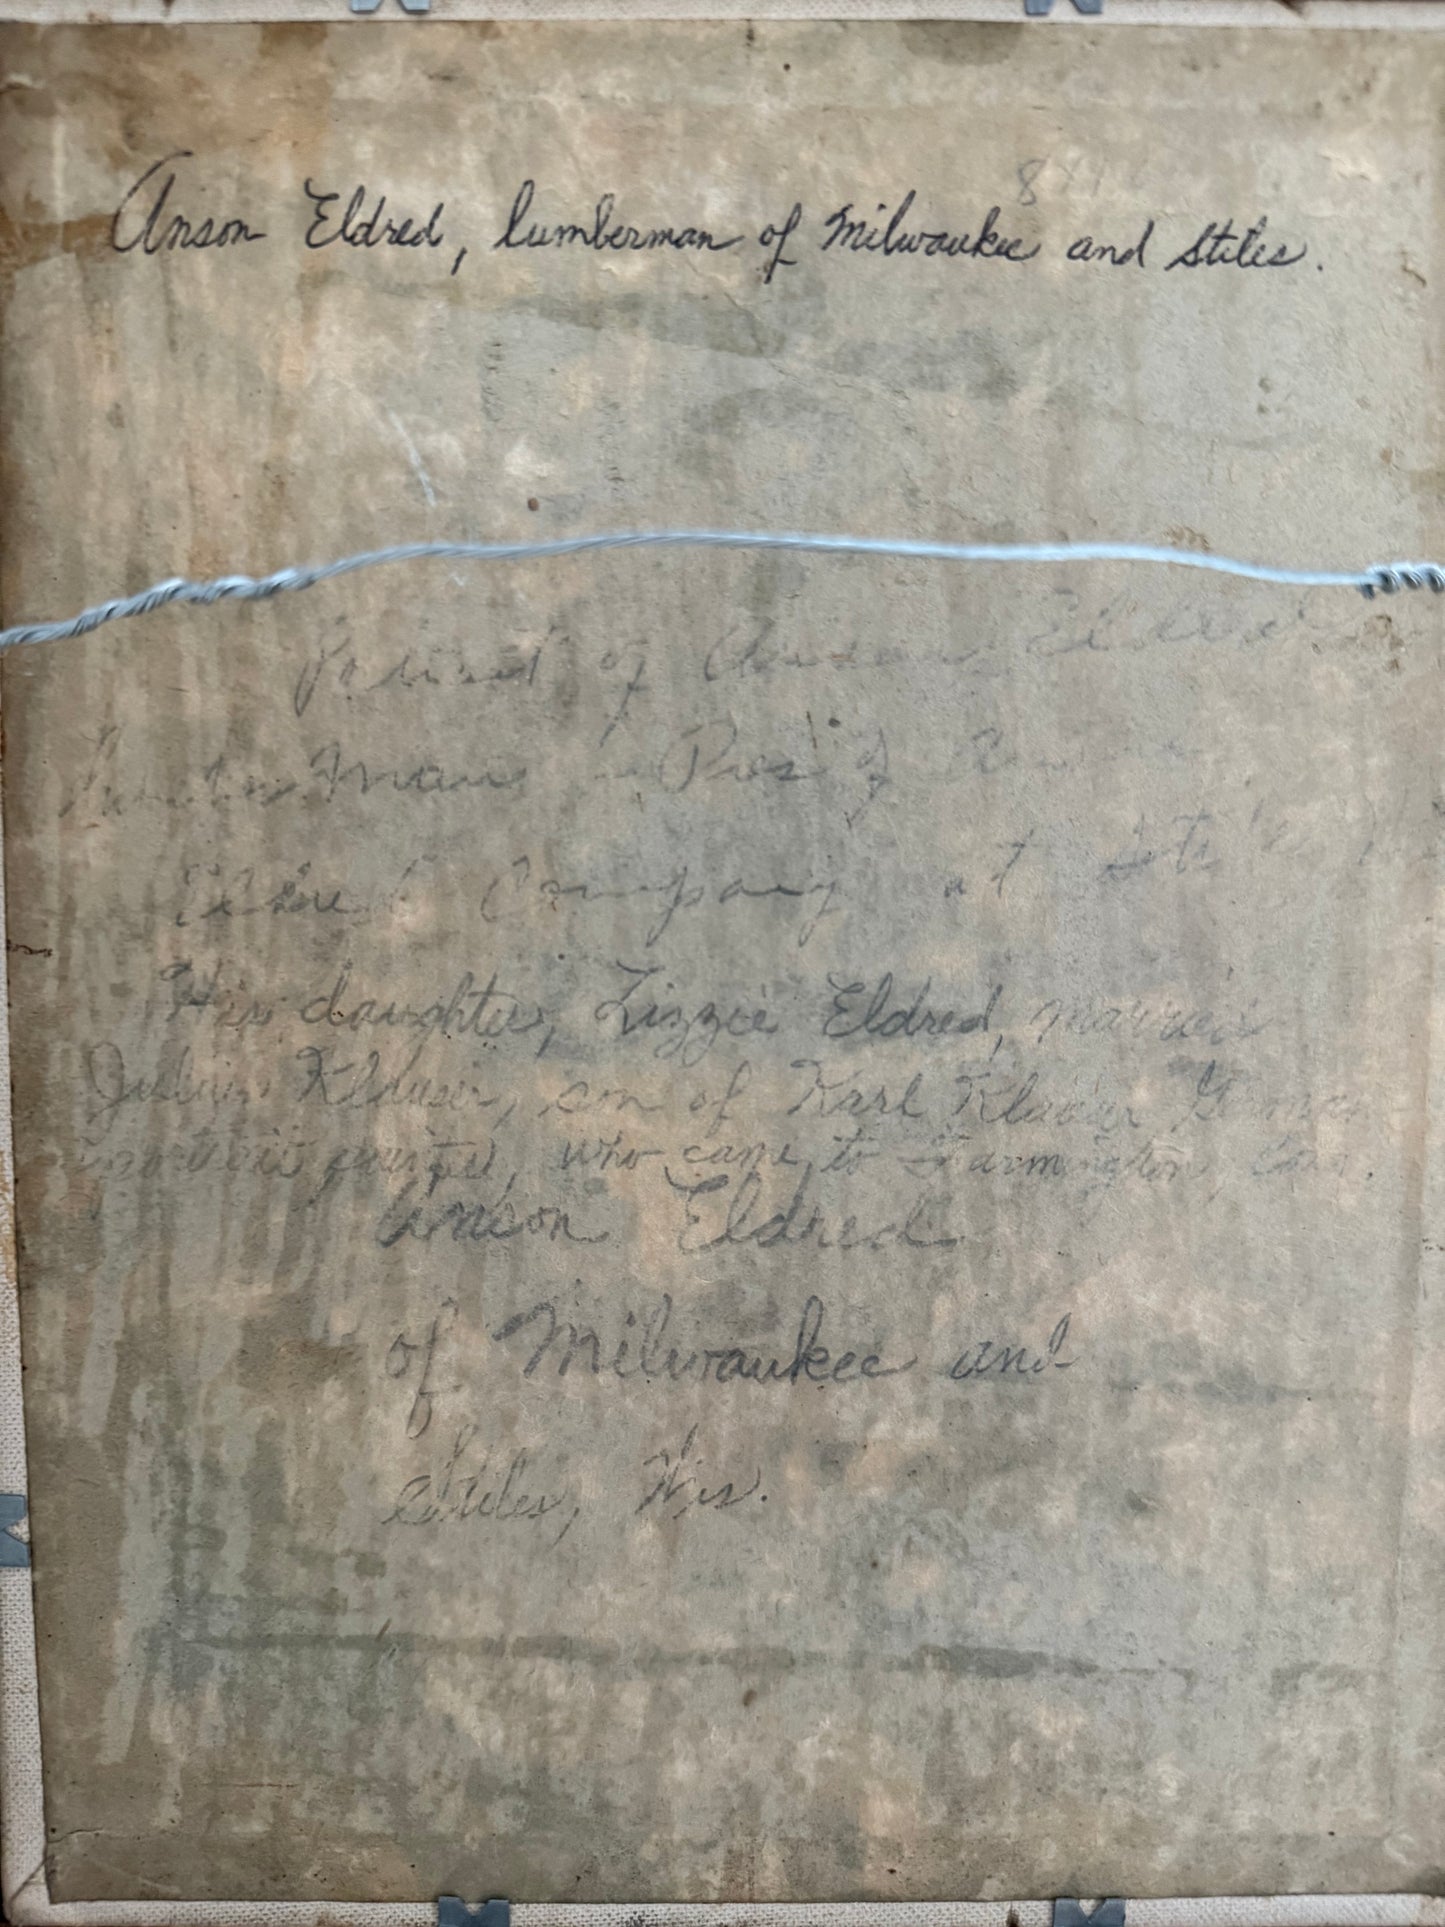 Anson Eldred, lumberman of Milwaukee and Stiles.
of Anson Eldred
Pres of
Eldred Company at
His daughter, Lizzie Eldred, married
Klauser, son of Karl Klauser German
portrait painter, who came to Farmington, Conn.
Anson Eldred
of Milwaukee and
Stiles, Wis.